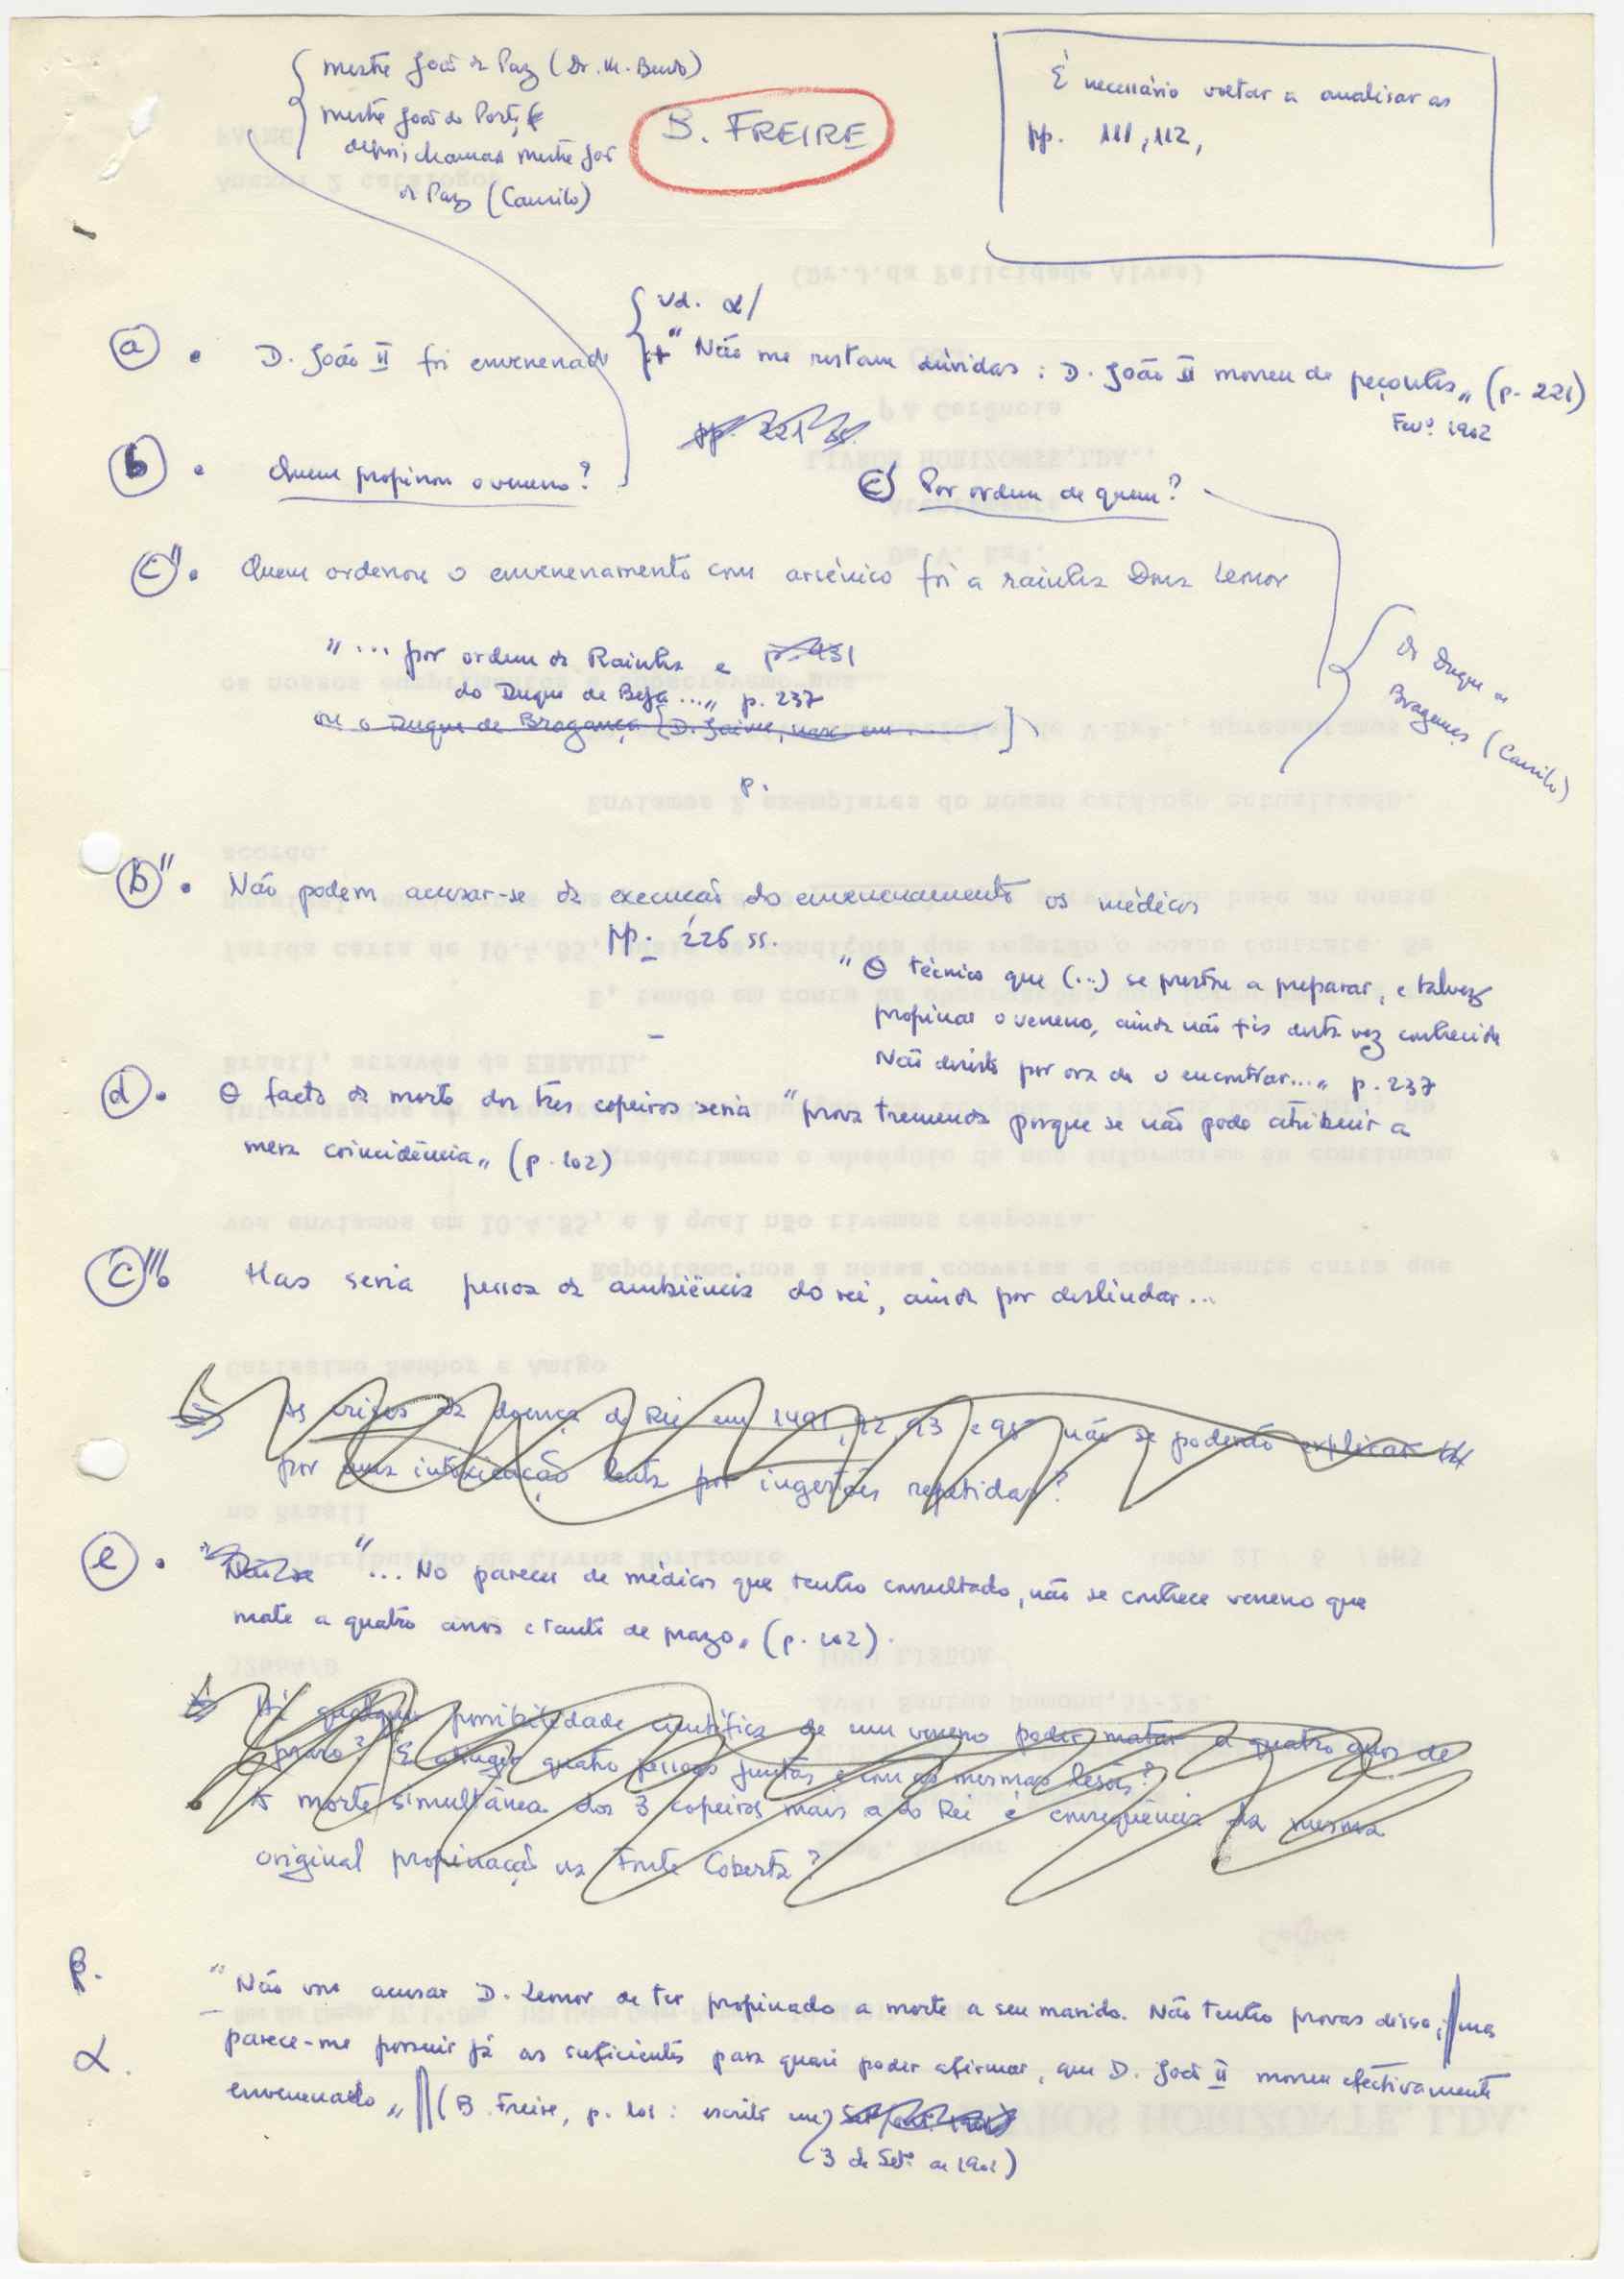 mestre João da Paz (Dr. M. Bento)
mestre João do Porto, e
depois chamado mestre João
da Paz (Camilo)
B. FREIRE
É necessário voltar a analisar as
pp. 111, 112,
vd. α/
a • D. João II foi envenenado + "Não me restam dúvidas: D. João II morreu de peçonha" (p. 221)
Fevº. 1902
pp. 221 ss.
b • Quem propinou o veneno?
c' Por ordem de quem?
c" • Quem ordenou o envenenamento com arsénico foi a rainha Dona Leonor
"... por ordem da Rainha e
do Duque de Beja ..." p. 237
ou o Duque de Bragança [D. Jaime, nasc. em ]
p.
Do Duque de
Bragança (Camilo)
b" • Não podem acusar-se da execução do envenenamento os médicos
pp. 226 ss.
"O técnico que (...) se prestou a preparar, e talvez
propinar o veneno, ainda não fis desta vez conhecido
Não desisto por ora de o encontrar..." p. 237
d • O facto da morte dos três copeiros seria "prova tremenda porque se não pode atribuir a
mera coincidência" (p. 102)
c''' • Mas seria pessoa da ambiência do rei, ainda por deslindar...
As crises da doença do Rei em 1491, 92, 93 e 95 não se poderão explicar
por uma intoxicação lenta por ingestões repetidas?
e • Não se "... No parecer de médicos que tenho consultado, não se conhece veneno que
mate a quatro anos e tanto de prazo" (p. 102).
Há qualquer possibilidade científica de um veneno poder matar a quatro anos de
prazo? E atingir quatro pessoas juntas e com as mesmas lesões?
• A morte simultânea dos 3 copeiros mais a do Rei é consequência da mesma
original propinação na Fonte Coberta?
β. "Não vou acusar D. Leonor de ter propinado a morte a seu marido. Não tenho provas disso; mas
α. parece-me possuir já as suficientes para quasi poder afirmar, que D. João II morreu efectivamente
envenenado" (B. Freire, p. 101: escrito em)
(3 de Setº. de 1901)